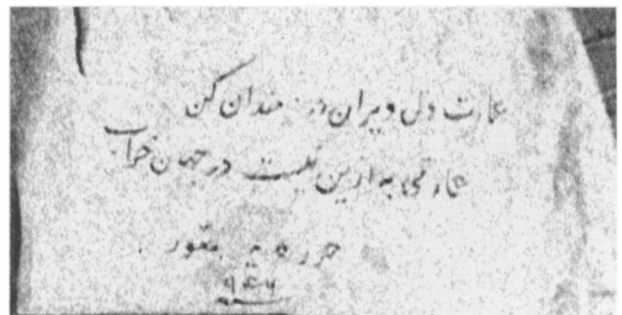 عمارت دل ویران دردمندان کن
عمارتی به ازین نیست در جهان خراب
حرره